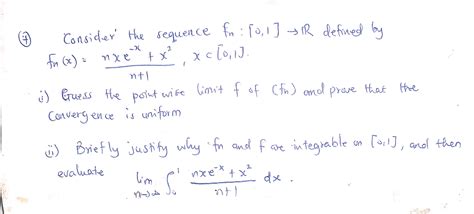 ⑦ Consider the sequence fn : [0,1] → ℝ defined by
fn(x) = (nxe^-x + x²)/(n+1) , x ∈ [0,1].
i) Guess the pointwise limit f of (fn) and prove that the
Convergence is uniform
ii) Briefly justify why fn and f are integrable on [0,1], and then
evaluate lim n→∞ ∫₀¹ (nxe^-x + x²)/(n+1) dx .